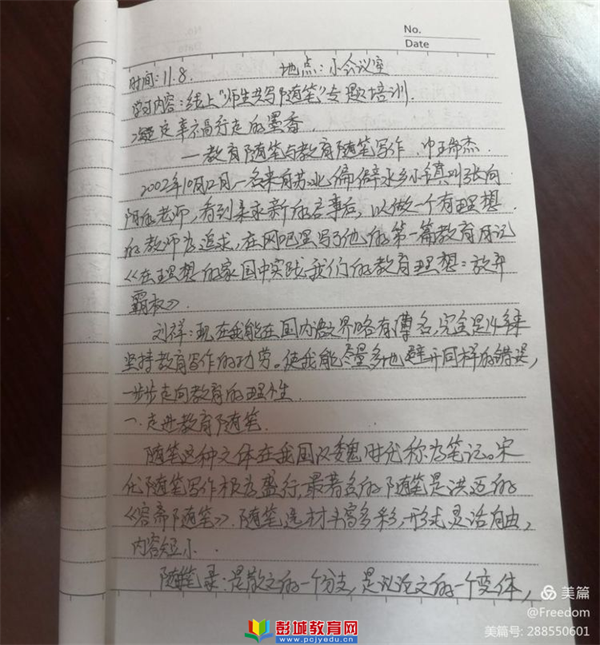 No.
Date
时间:11.8. 地点:小会议室
学习内容:线上“师生共写随笔”专题培训.
凝定幸福行走的墨香.
——教育随笔与教育随笔写作
2002年10月12日一名来自苏北偏僻水乡小镇叫张向
阳的老师,看到朱永新的启事后,以做一个有理想
的教师为追求,在网吧里写了他的第一篇教育日记
《在理想的家园中实践我们的教育理想:放弃
霸权》.
刘祥:现在我能在国内语文界略有薄名,完全是14年来
坚持教育写作的功劳。使我能尽量多地避开同样的错误,
一步步走向教育的理性.
一.走进教育随笔
随笔这种文体在我国汉魏时代称为笔记。宋
代随笔写作极为盛行.最著名的随笔是洪迈的
《容斋随笔》.随笔选材丰富多彩,形式灵活自由,
内容短小.
随笔是散文的一个分支,是议论文的一个变体,
美篇
@Freedom
美篇号: 288550601
彭城教育网
www.pcjyedu.cn